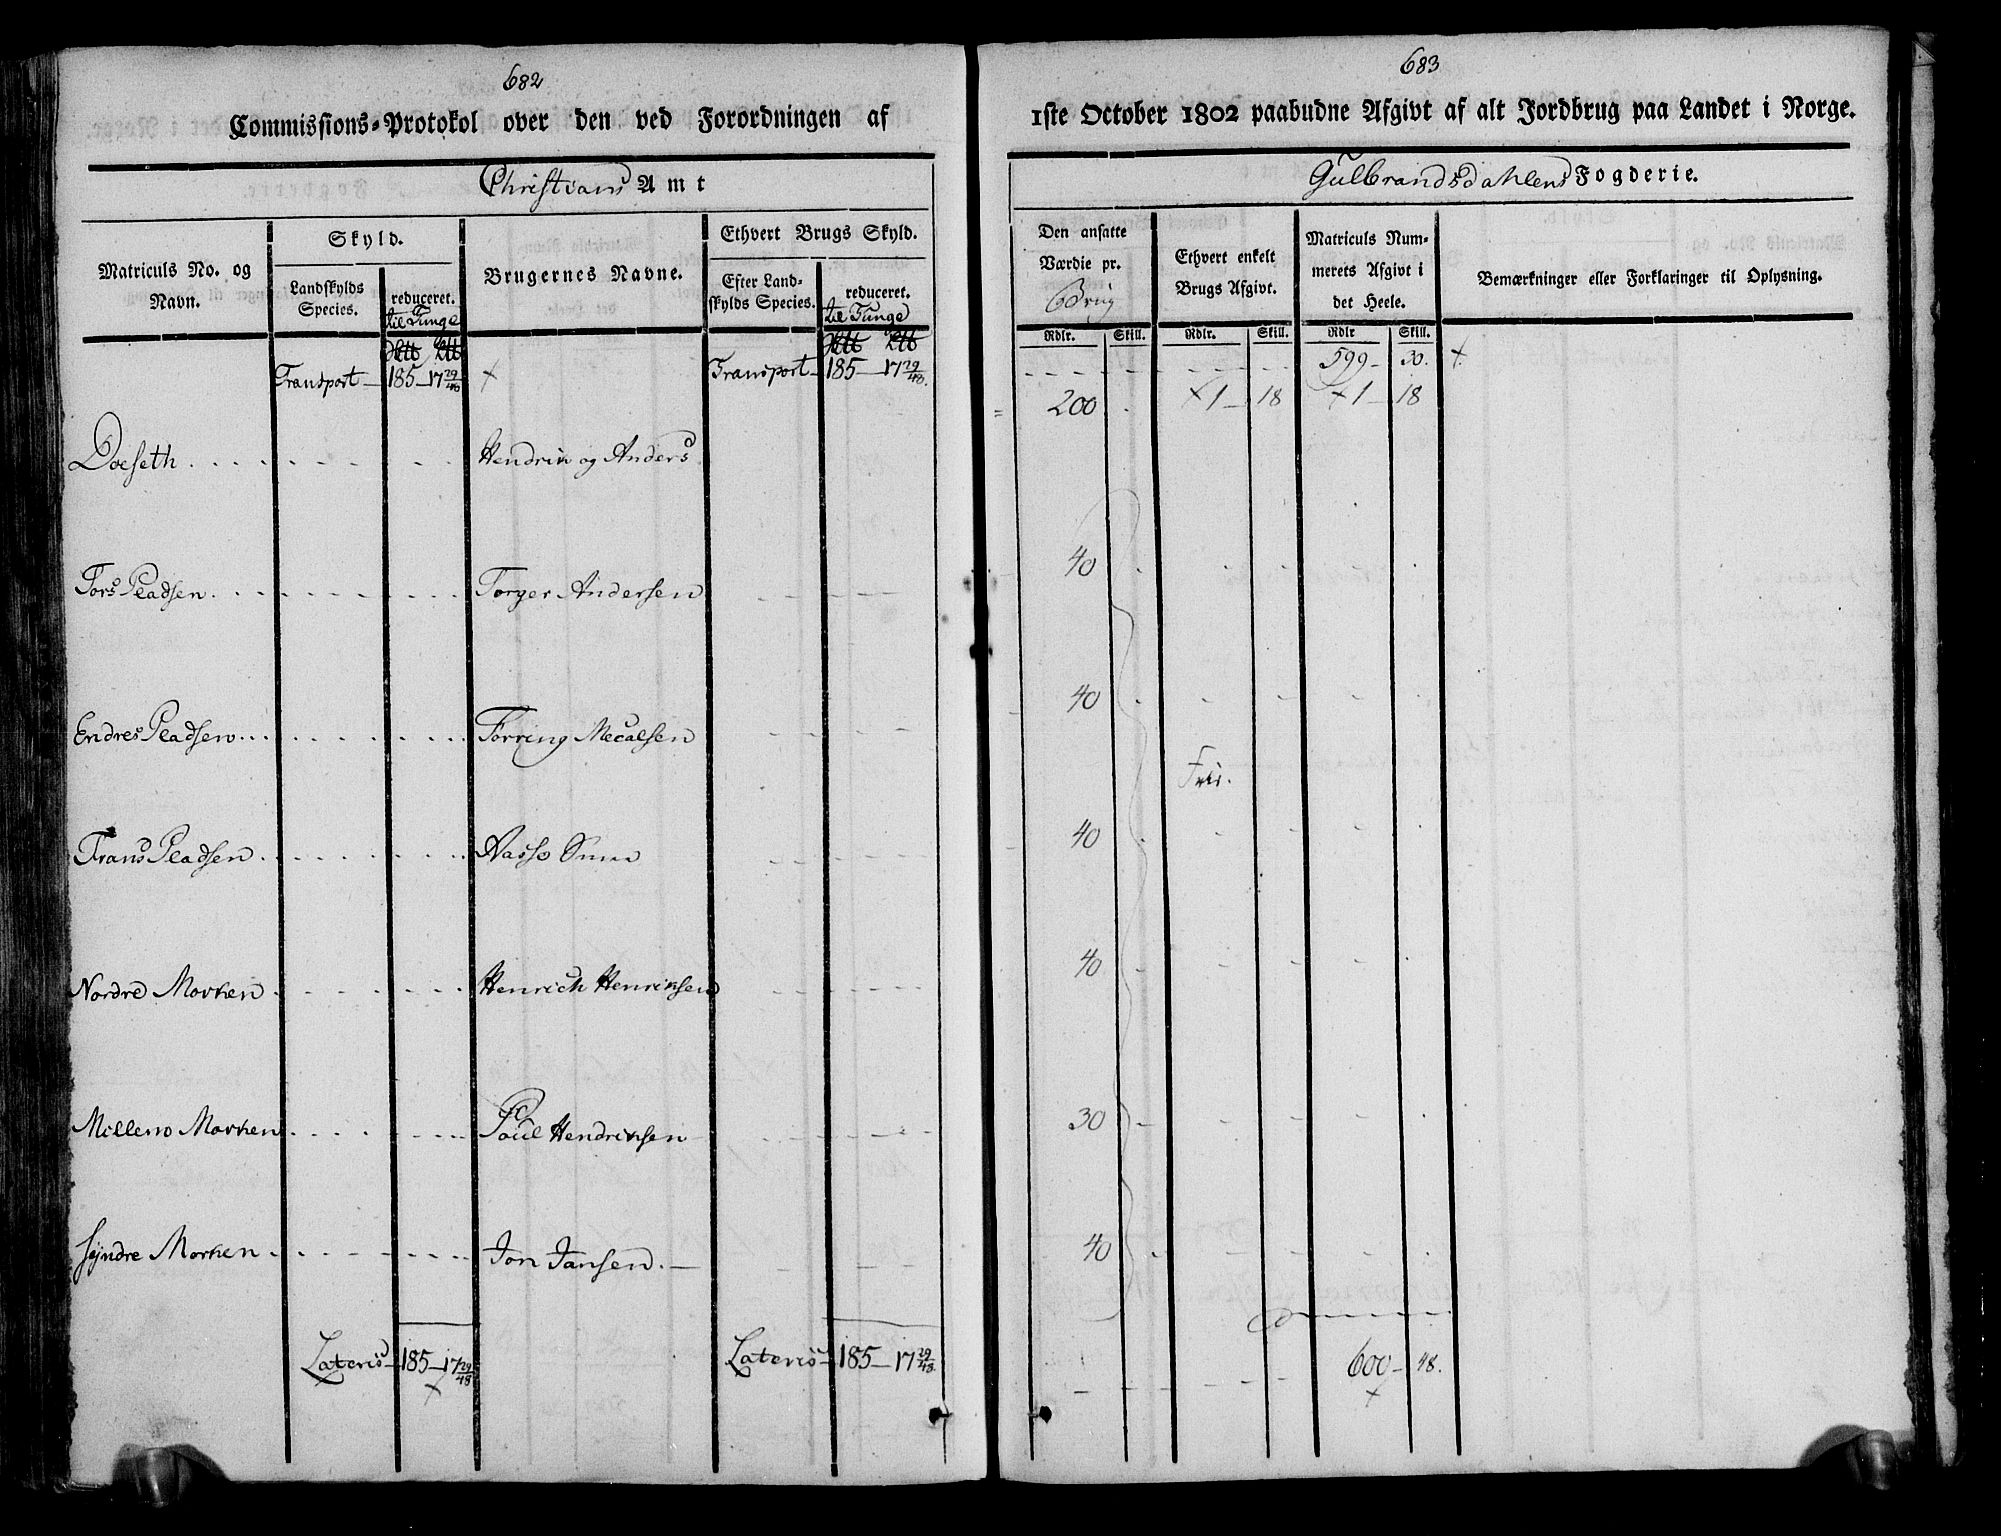 682
Commissions=Protokol over den ved Forordningen af
Christians Amt
Matriculs No. og Navn.
Skyld.
Landskylds Species.
reduceret. til Tunge
Brugernes Navne.
Ethvert Brugs Skyld.
Efter Landskylds Species.
reduceret. til Tunge
Transport — 185 — 17 29/48 Transport — 185 — 17 29/48.
Doeseth Hendrik og Anders
Tors Pladsen Torger Andersen
Endres Pladsen Torring Mecalsen
Frans Pladsen Aasse
Nordre Morken Henrich Henriksen
Millem Morken Poul Hendriksen
Syndre Morken Jon Jansen.
Lateris — 185 — 17 29/48 Lateris — 185 — 17 29/48.
683
1ste October 1802 paabudne Afgivt af alt Jordbrug paa Landet i Norge.
Gulbrandsdahlens Fogderie.
Den ansatte Værdie pr. Brug
Ethvert enkelt Brugs Afgivt.
Matriculs Nummerets Afgivt i det Heele.
Bemærkninger eller Forklaringer til Oplysning.
Rdlr. Skill. Rdlr. Skill. Rdlr Skill.
599 — 30.
200 . 1 — 18 1 — 18
40
40
Frii.
40
40
30
40
600 — 48.